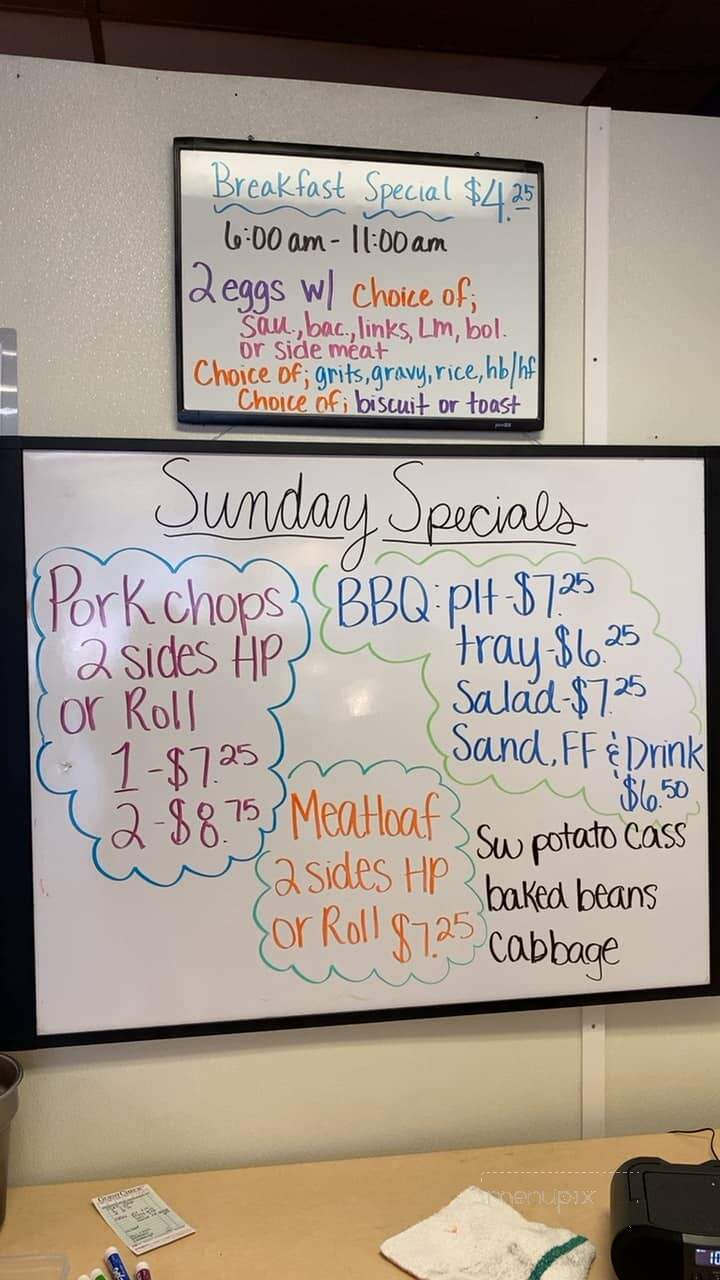 Breakfast Special $4.25
6:00 am - 11:00 am
2 eggs w/ Choice of;
Sau., bac., links, Lm, bol.
or side meat
Choice of; grits, gravy, rice, hb/hf
Choice of; biscuit or toast
Sunday Specials
Pork chops
2 sides HP
or Roll
1-$7.25
2-$8.75
BBQ: plt-$7.25
tray-$6.25
Salad-$7.25
Sand, FF & Drink
$6.50
Meatloaf
2 sides HP
or Roll $7.25
Sw potato cass
baked beans
cabbage
Guest Check
menupix
10